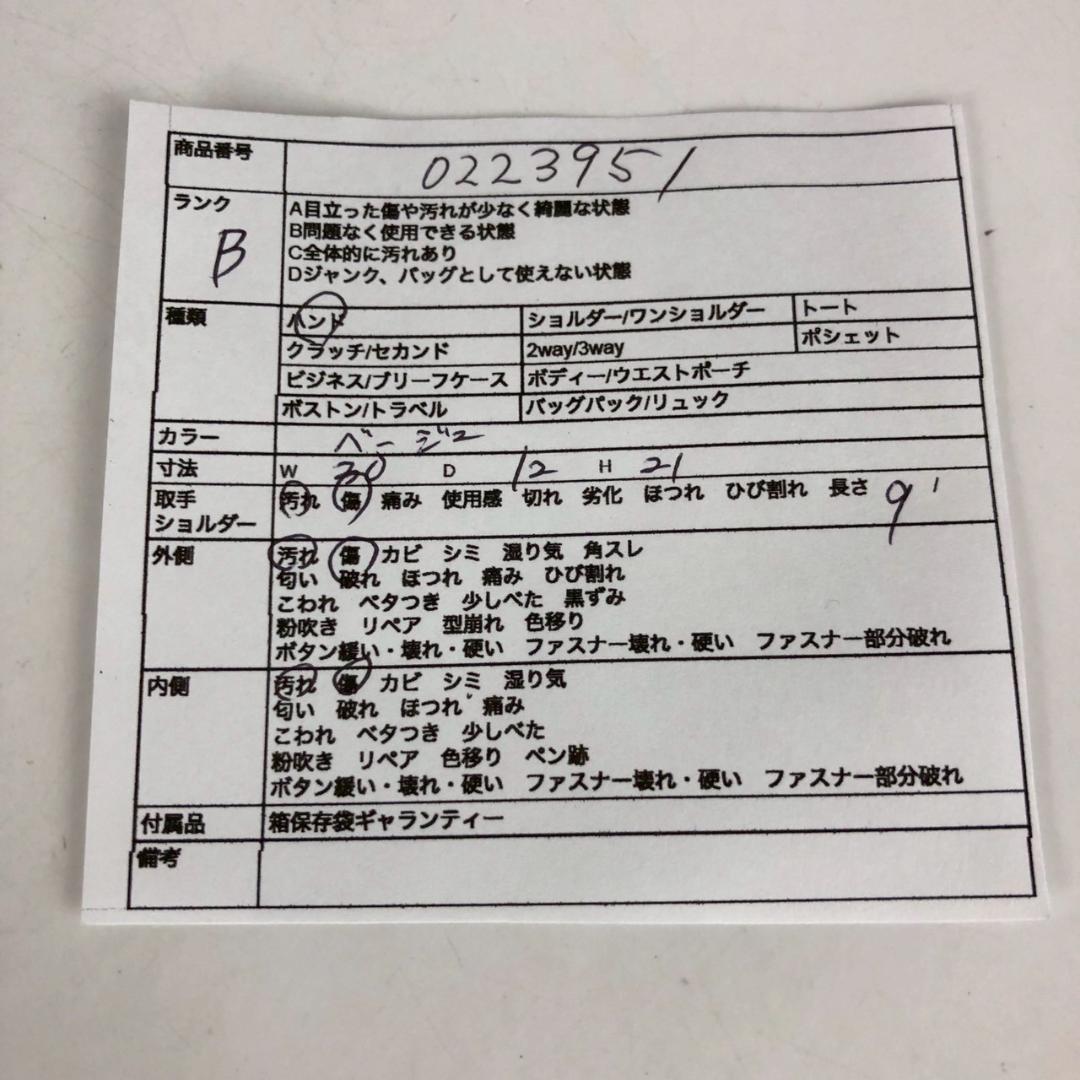 商品番号 0223951
ランク B
A目立った傷や汚れが少なく綺麗な状態
B問題なく使用できる状態
C全体的に汚れあり
Dジャンク、バッグとして使えない状態
種類 ハンド ショルダー/ワンショルダー トート
クラッチ/セカンド 2way/3way ポシェット
ビジネス/ブリーフケース ボディー/ウエストポーチ
ボストン/トラベル バッグパック/リュック
カラー ベージュ
寸法 W 30 D 12 H 21
取手 汚れ 傷 痛み 使用感 切れ 劣化 ほつれ ひび割れ 長さ 9
ショルダー
外側 汚れ 傷 カビ シミ 湿り気 角スレ
匂い 破れ ほつれ 痛み ひび割れ
こわれ ベタつき 少しべた 黒ずみ
粉吹き リペア 型崩れ 色移り
ボタン緩い・壊れ・硬い ファスナー壊れ・硬い ファスナー部分破れ
内側 汚れ 傷 カビ シミ 湿り気
匂い 破れ ほつれ 痛み
こわれ ベタつき 少しべた
粉吹き リペア 色移り ペン跡
ボタン緩い・壊れ・硬い ファスナー壊れ・硬い ファスナー部分破れ
付属品 箱保存袋ギャランティー
備考